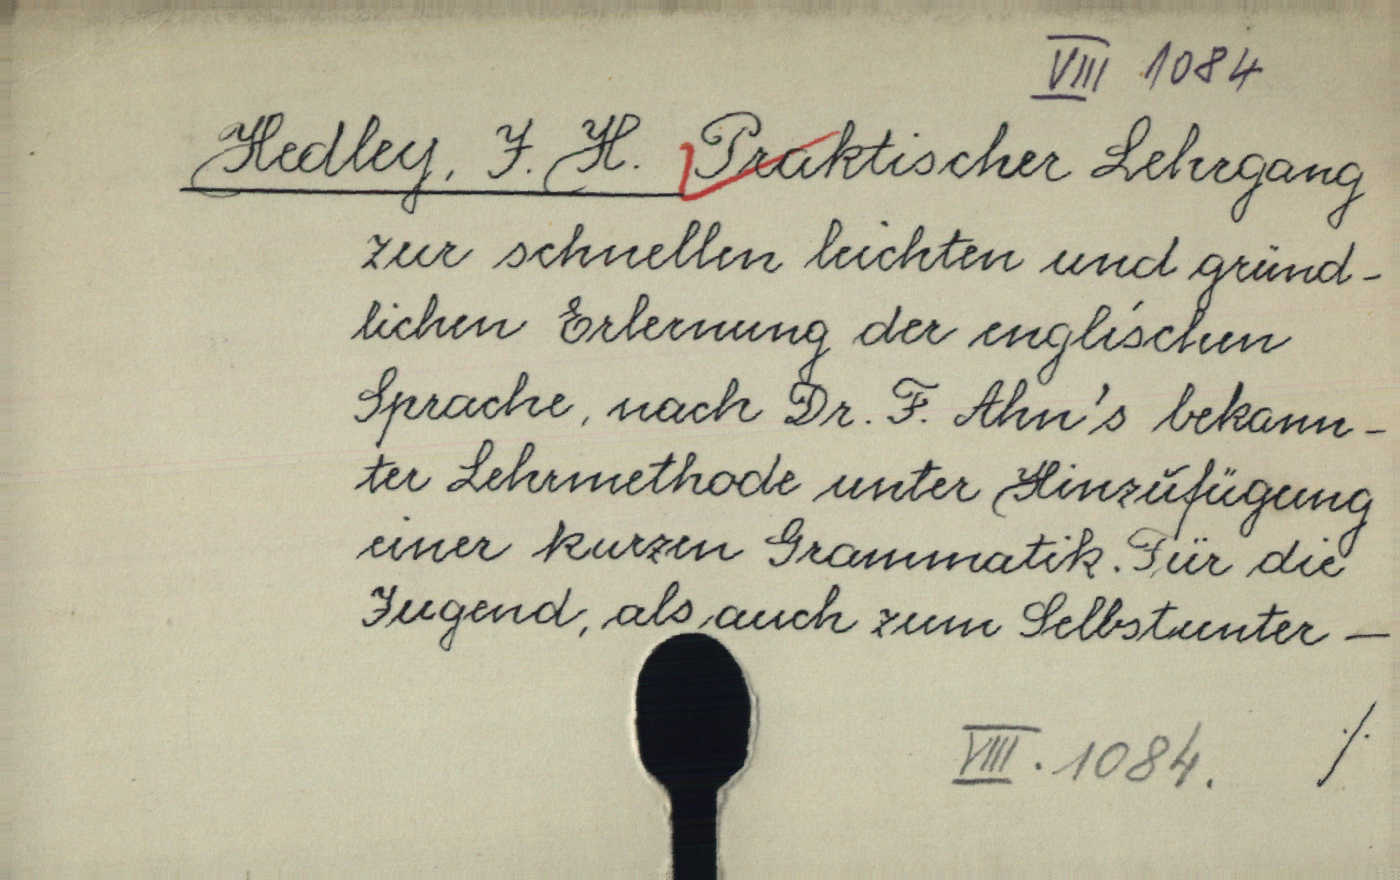 VIII 1084
Hedley, F. H. Praktischer Lehrgang
zur schnellen leichten und gründ-
lichen Erlernung der englischen
Sprache, nach Dr. F. Ahn's bekann-
ter Lehrmethode unter Hinzufügung
einer kurzen Grammatik. Für die
Jugend, als auch zum Selbstunter-
VIII. 1084. ./.